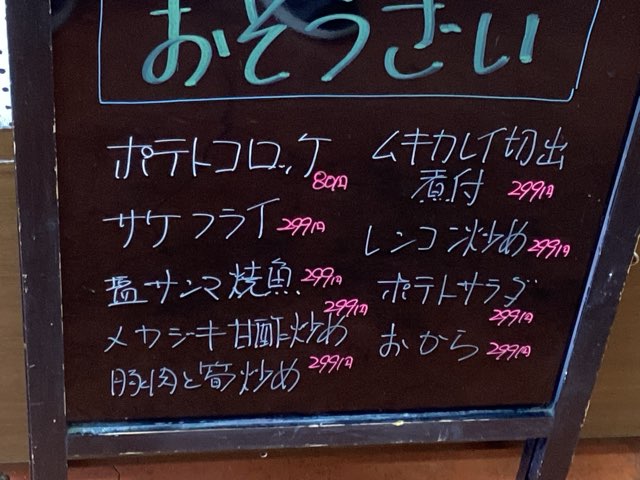 おそうざい
ポテトコロッケ
80円
サケフライ 299円
塩サンマ焼魚 299円
299円
メカジキ甘酢炒め
豚肉と筍炒め 299円
ムキカレイ切出
煮付 299円
レンコン炒め 299円
ポテトサラダ
299円
おから 299円